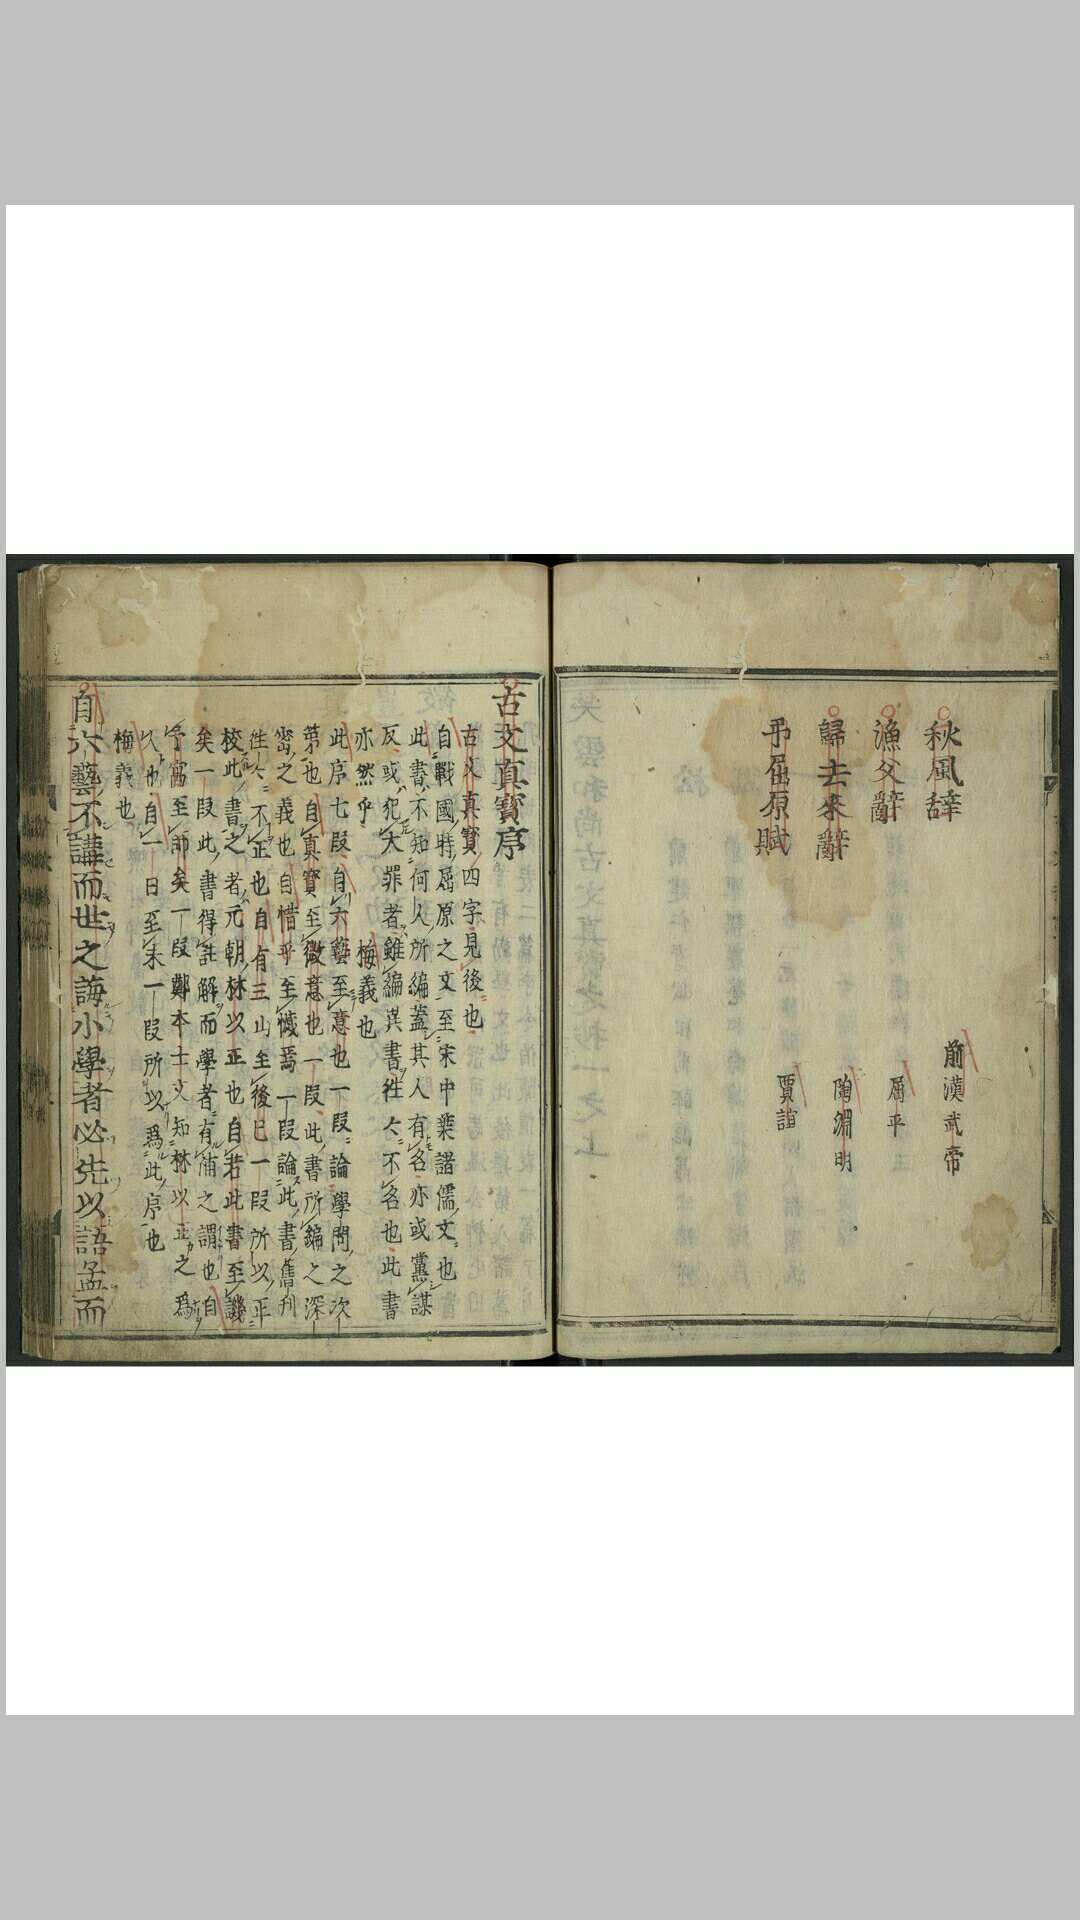 秋風辞 前漢武帝
漁父辭 屈平
歸去來辭 陶淵明
弔屈原賦 賈誼
古文真寳序
古文真寳四字見後也
自戰國時屈原之文至宋中葉諸儒文也
此書不知何人所編蓋其人有各亦或黨謀
反或犯大罪者雖編其書徃〻不名也此書
亦然乎 梅義也
此序七段自六藝至意也一段論學問之次
第也自真寳至微意也一段此書所編之深
宻之義也自惜乎至憾焉一段論此書舊刊
徃〻不正也自有三山至後已一段所以平
校此書之者元朝林以正也自若此書至譏
矣一段此書得註解而學者有浦之謂也自
予寓至命矣一段鄭本士文知林以正之爲
人也自一日至末一段所以爲此序也
梅義也
自六藝不講而世之誨小學者必先以語孟而